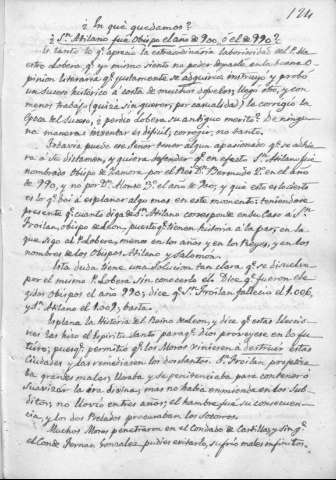 124
¿ En qué quedamos?
¿ Sn. Atilano fué Obispo el año de 900, ó el de 990?
Es tanto lo q. aprecio la extraordinaria laboriosidad del P. Ma-
estro Lobera, q. yo mismo siento no poder dejarle en la buena o-
pinion literaria q. justamente se adquirió. Instruyó y probó
un suceso histórico á costa de muchos desvelos; llego otro, y con
menos trabajo (quizá sin querer, por casualidad) le corregio la
Epoca del Suceso, ¿ perdio Lobera su antiguo merito? De ningu-
na manera: inventar es dificil; corregir, no tanto.
Todavia puede ese Señor tener algun apasionado q. se adhie-
ra á su dictamen, y quiera defender q. en efecto Sn. Atilano fué
nombrado Obispo de Zamora por el Rey Dn. Bermudo 2º. en el año
de 990, y no por Dn. Alonso 3º. el año de 900; y que esto es lo cierto
es lo q. boi á esplanar algo mas en este momento: teniendose
presente q. cuanto diga de Sn. Atilano corresponde en su caso á Sn.
Froilan Obispo de Leon, puesto q. tienen historia á la par, en la
que sigo al P. Lobera, menos en los años y en los Reyes, y en los
nombres de los Obispos Atilano y Salomon.
Esta duda tiene una solucion tan clara, q. se disuelve
por el mismo P. Lobera sin conocerlo él. Dice q. fueron ele-
gidos Obispos el año 990; dice q. Sn. Froilan fallecio el 1.006,
y Sn. Atilano el 1.009; basta.
Esplana la Historia del Reino de Leon, y dice q. estas eleccio-
nes las hizo el Espiritu Santo para q. Dios proveyese en lo fu-
turo; pues q. permitió q. los Moros viniesen á destruir estas
Ciudades y las remediasen los dos Santos. Sn. Froilan profetiza-
ba grandes males, lloraba y se penitenciaba para contener ó
suavizar la ira divina; mas no habia enmienda en los Sub-
ditos; no llovió en tres años; el hambre fué su consecuen-
cia, y los dos Prelados procuraban los socorros.
Muchos Moros penetraron en el Condado de Castilla, y sin q.
el Conde Fernan Gonzalez pudiese evitarlo, sufrio males infinitos.